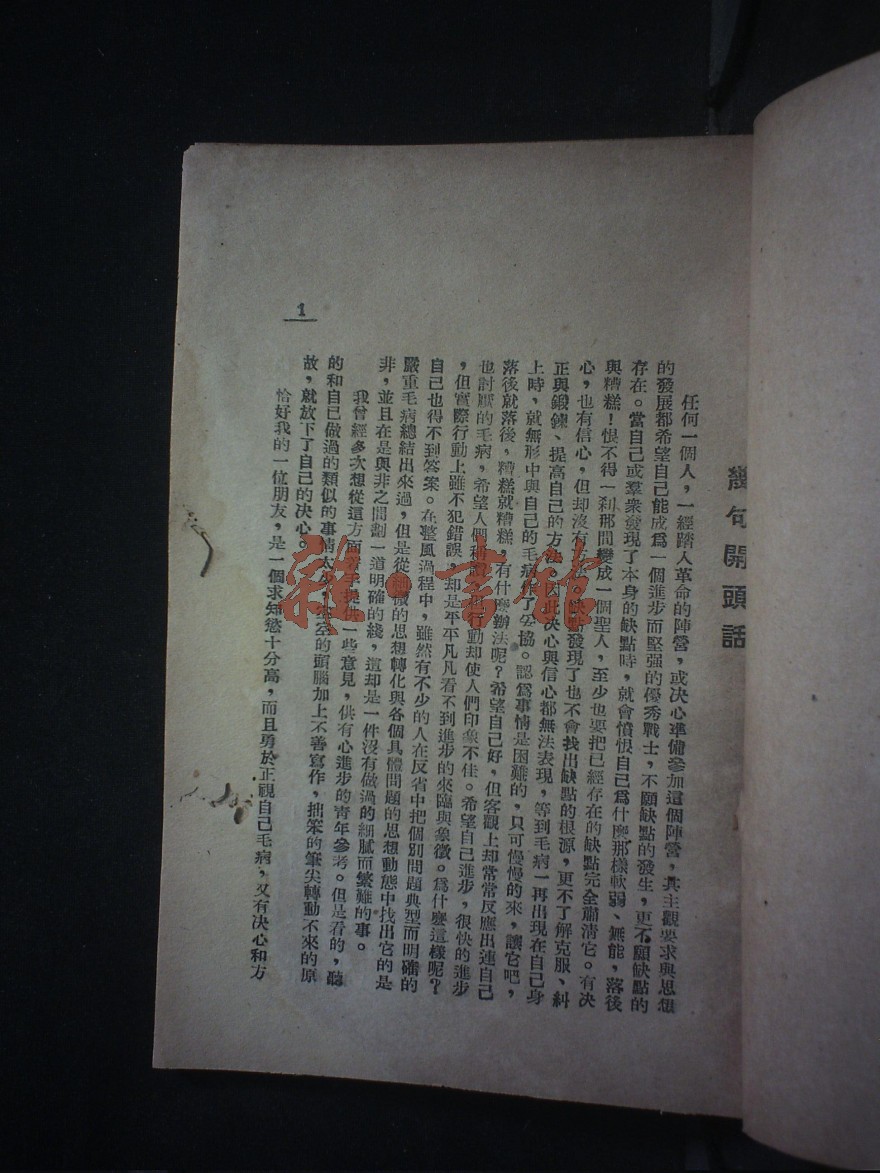 幾句開頭話
任何一個人，一經踏入革命的陣營，或決心準備參加這個陣營，其主觀要求與思想
的發展都希望自己能成爲一個進步而堅强的優秀戰士，不願缺點的發生，更不願缺點的
存在。當自己或羣衆發現了本身的缺點時，就會憤恨自己爲什麼那樣軟弱、無能，落後
與糟糕！恨不得一刹那間變成一個聖人，至少也要把已經存在的缺點完全肅清它。有決
心，也有信心，但却沒有 缺點發現了也不會找出缺點的根源，更不了解克服、糾
正與鍛鍊、提高自己的方法，因此決心與信心都無法表現，等到毛病一再出現在自己身
上時，就無形中與自己的毛病作了妥協。認爲事情是困難的，只可慢慢的來，讓它吧，
落後就落後，糟糕就糟糕，有什麼辦法呢？希望自己好，但客觀上却常常反應出連自己
也討厭的毛病，希望人們稱 行動却使人們印象不佳。希望自己進步，很快的進步
，但實際行動上雖不犯錯誤，却是平平凡凡看不到進步的來臨與象徵。爲什麼這樣呢？
自己也得不到答案。在整風過程中，雖然有不少的人在反省中把個別問題典型而明確的
嚴重毛病總結出來過，但是從細微的思想轉化與各個具體問題的思想動態中找出它的是
非，並且在是與非之間劃一道明確的綫，這却是一件沒有做過的細膩而繁難的事。
我曾經多次想從這方面着手提供一些意見，供有心進步的青年參考。但是看的，聽
的和自己做過的類似的事情太少，空空的頭腦加上不善寫作，拙笨的筆尖轉動不來的原
故，就放下了自己的決心。
恰好我的一位朋友，是一個求知慾十分高，而且勇於正視自己毛病，又有決心和方
1
雜·書館